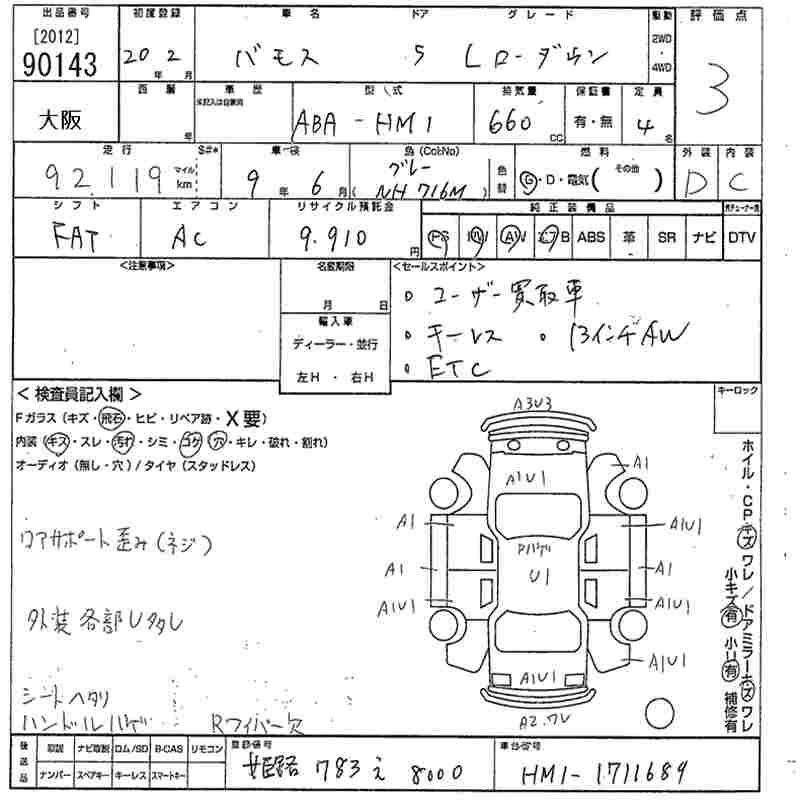 出品番号 初度登録 車名 ドア グレード 駆動 評価点
[2012] 90143 20年 2月 バモス 5 Lローダウン 2WD・4WD 3
西暦 車歴 型式 排気量 保証書 定員
未記入は自家用
大阪 年 ABA-HM1 660cc 有・無 4名
走行 S#* 車検 色(Col:No) 燃料 外装 内装
92,119 マイル km 9年 6月 グレー (NH716M) 色替 G・D・電気( その他 ) D C
シフト エアコン リサイクル預託金 純正装備品 純チューナー付
FAT AC 9.910円 PS PW AW エアB ABS 革 SR ナビ DTV
<注意事項> 名変期限 <セールスポイント>
月 日 ○ユーザー買取車
輸入車 ・キーレス ○13インチAW
ディーラー・並行 ・ETC
左H ・ 右H
<検査員記入欄> キーロック
Fガラス(キズ・飛石・ヒビ・リペア跡・X要)
内装(キズ・スレ・汚れ・シミ・コゲ・穴・キレ・破れ・割れ)
オーディオ(無し・穴)/タイヤ(スタッドレス)
A3U3
A1U1 A1
A1 A1U1
Pハゲ
A1 U1 A1
A1U1 A1U1
A1U1
A1U1
A2.ワレ
ホイル・CPキズワレ/ドアミラーキズワレ
小キズ有 小U有 補修有
コアサポート歪み(ネジ)
外装各部U多し
シートヘタリ
ハンドルハゲ Rワイパー欠
後送品 取説 ナビ取説 ロム/SD B-CAS リモコン 登録番号 車台番号
ナンバー スペアキー キーレス スマートキー 姫路 783 え 8000 HM1-1711689